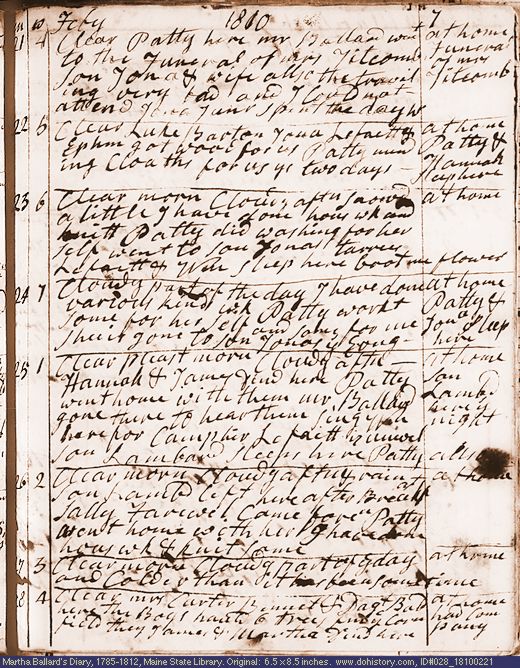 Feby 1810 7
21 4 Clear Patty here mr Ballard went at home
to the Funeral of mrs Titcomb Funeral
son Jona & wife allso the travil of mrs
ing very bad and I could not Titcomb
attend Jona Junr spent the day
22 5 Clear Luke Barton Jona Lafaett & at home
Ephm got wood for us Patty mend Patty &
ing Cloaths for us ys two days Hannah
sleep here
23 6 Clear morn Cloudy aftn snowd at home
a little I have done hous wk and
knitt Patty did washing for her
self went to son Jonas
Lafaett & Wm sleep here
24 7 Cloudy part of the day I have done at home
various kinds wk Patty workt Patty &
some for her self and some for me Jona sleep
shee is gone to son Jonas here
25 1 Clear pleast morn Cloudy aftn at home
Hannah & James dind here Patty son
went home with them mr Ballard Lambd
gone there to hear them sing here
here for Lafaett night
son Lambard sleeps here Patty allso
26 2 Clear morn Cloudy aftn rain at at home
son Lambd left here after Breakft
Sally Farewell Came for Patty
went home with her I have done
hous wk & knit some
27 3 Clear morn Cloudy part of ye day at home
and Colder than it has been some time
28 4 Clear mrs Carter & Dagt Bal at home
here the Boys hauld 6 trees had com
field they James & Martha dind here pany
Martha Ballard's Diary, 1785-1812, Maine State Library. Original: 6.5 x 8.5 inches. www.dohistory.com, ID#028_18100221